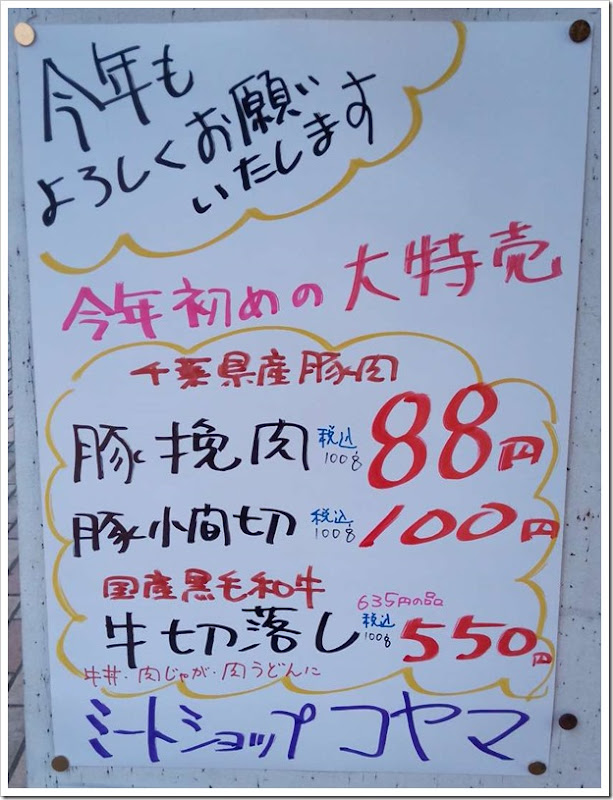 今年も
よろしくお願い
いたします
今年初めの大特売
千葉県産豚肉
豚挽肉 税込 100g 88円
豚小間切 税込 100g 100円
国産黒毛和牛
635円の品
牛切落し 税込 100g 550円
牛丼・肉じゃが・肉うどんに
ミートショップコヤマ